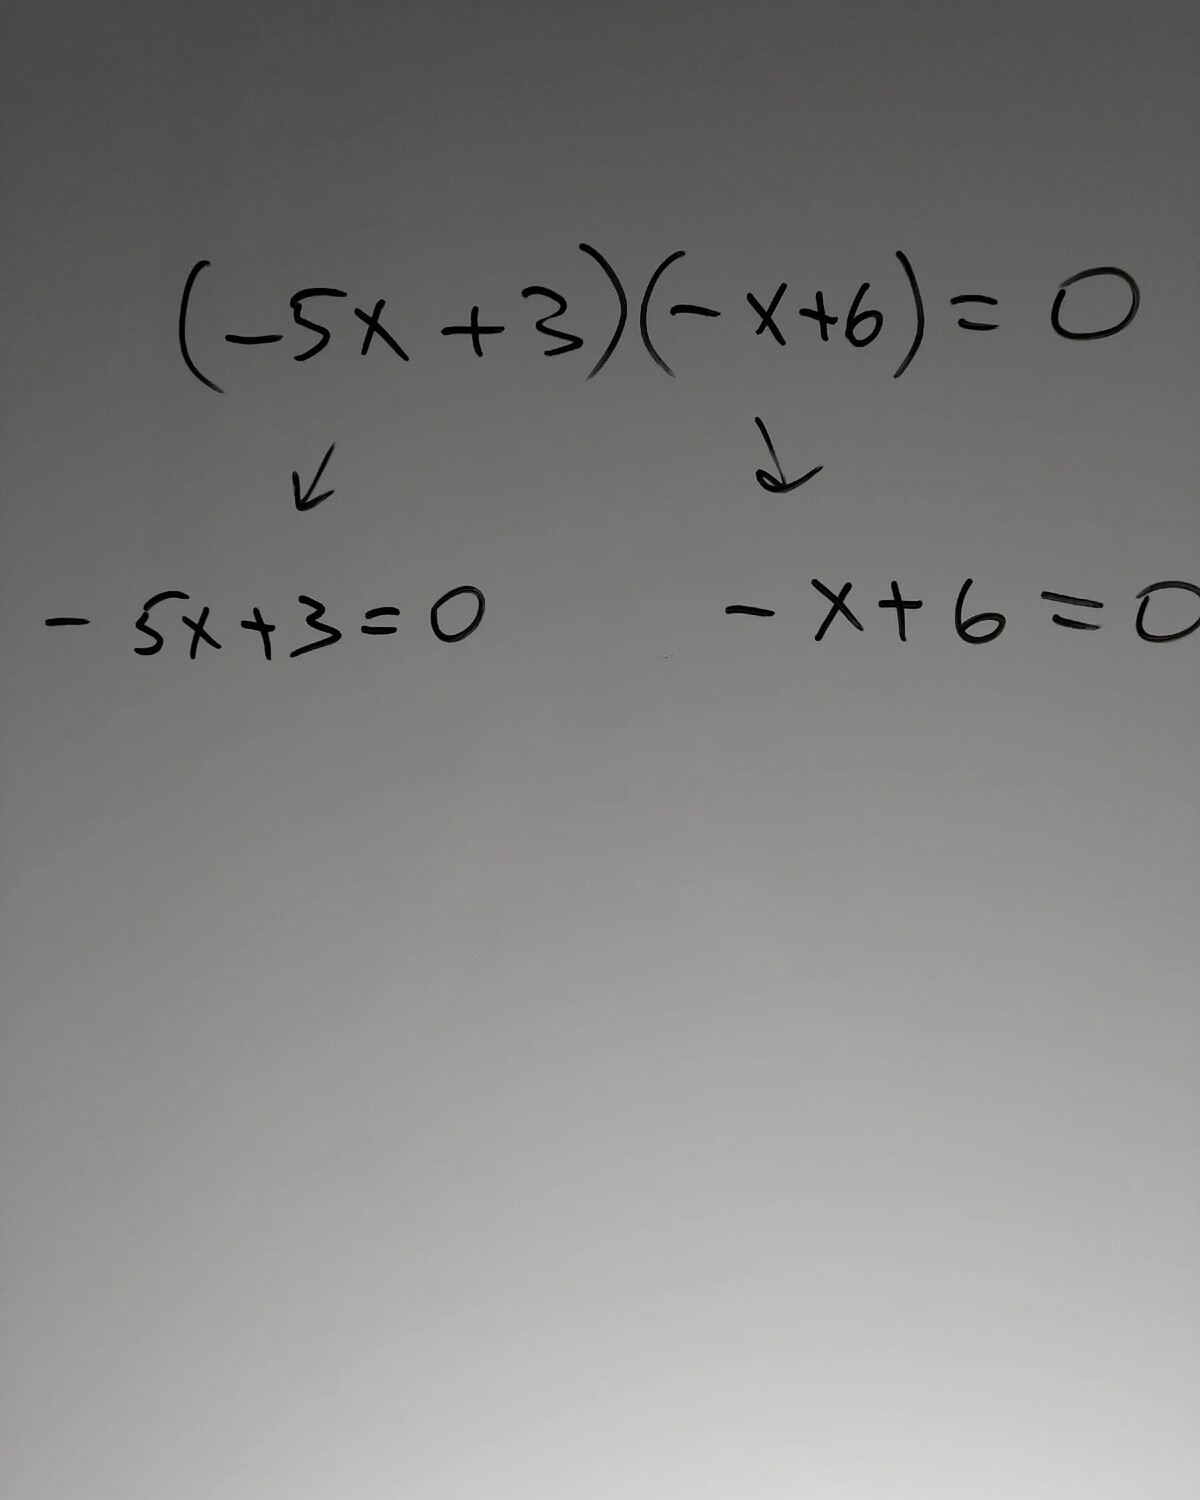 (-5x + 3)(-x+6) = 0
↙ ↘
-5x+3=0 -x+6=0